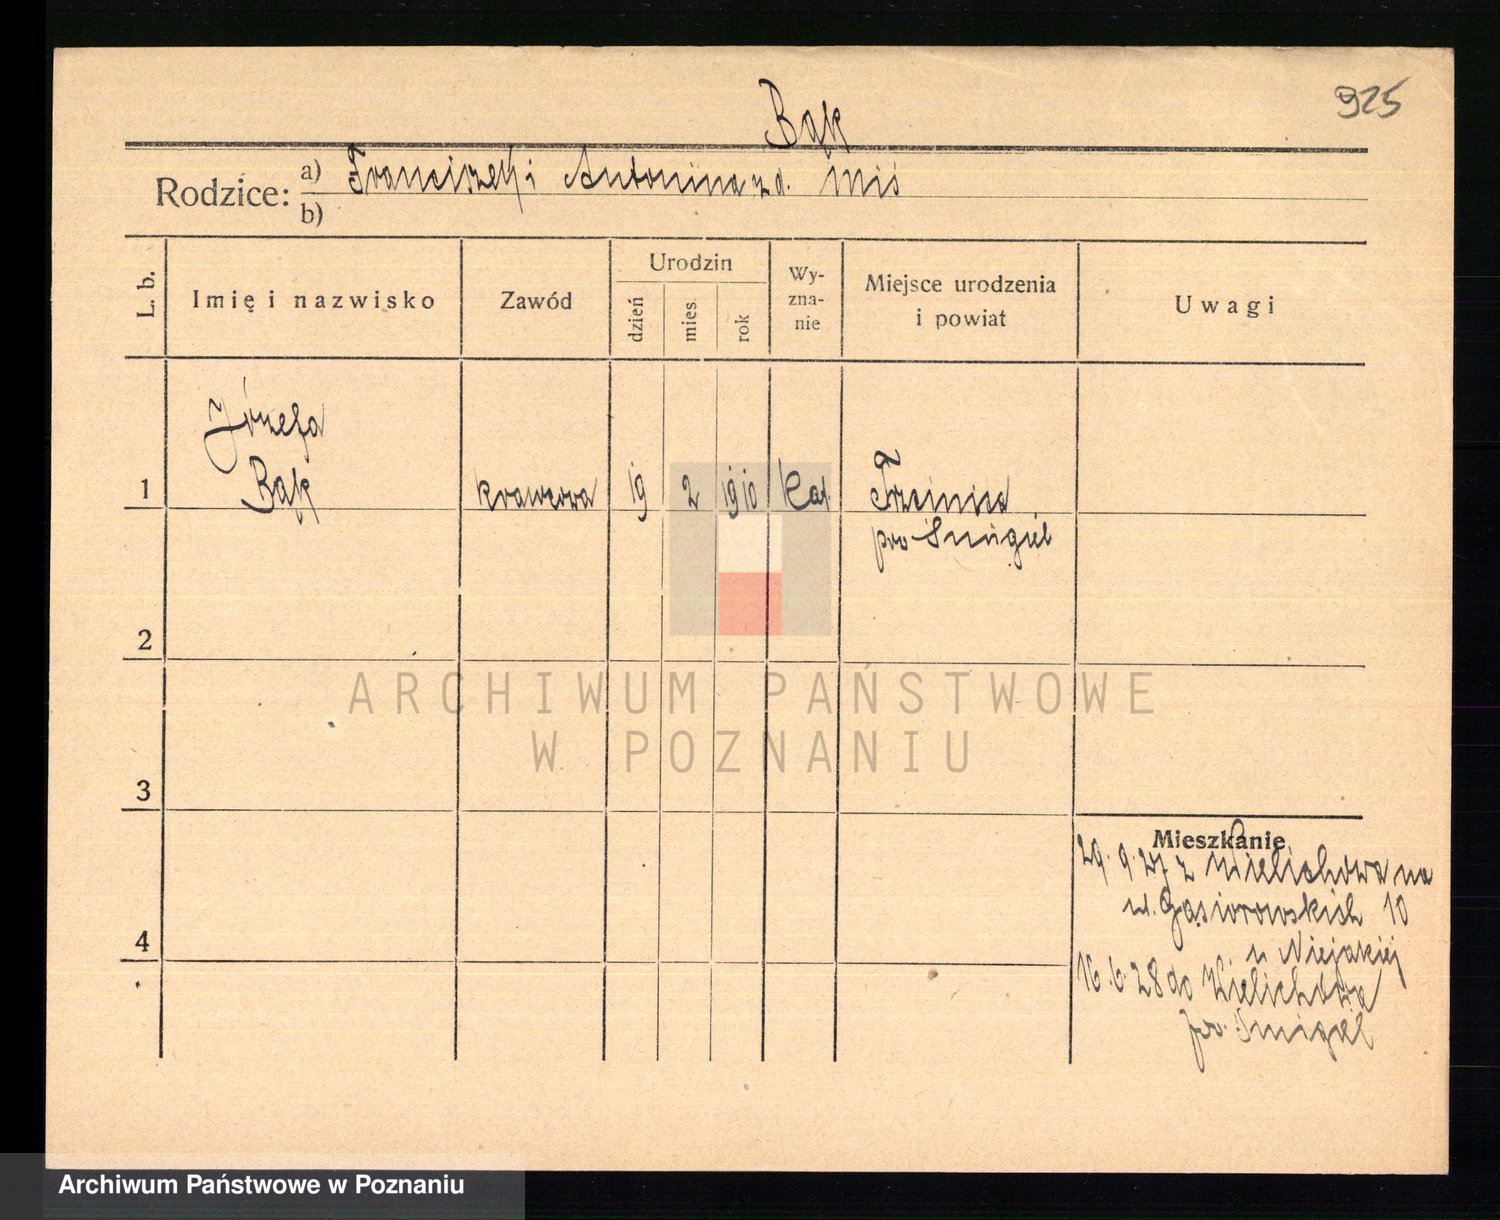 925
Bąk
Rodzice: a) Franciszek i Antonina z d. Miś
b)
L. b.
Imię i nazwisko
Zawód
Urodzin
dzień
mies.
rok
Wy-
zna-
nie
Miejsce urodzenia
i powiat
Uwagi
Józefa
1 Bąk krawcowa 19 2 1910 Kat.
pow Śmigiel
2
3
4
Mieszkanie
29.9.27 z Wielichowa na
ul. Gąsiorowskich 10
u Niejakiej
16.6.28 do Wielichowa
pow. Śmigiel
ARCHIWUM PAŃSTWOWE
W POZNANIU
Archiwum Państwowe w Poznaniu